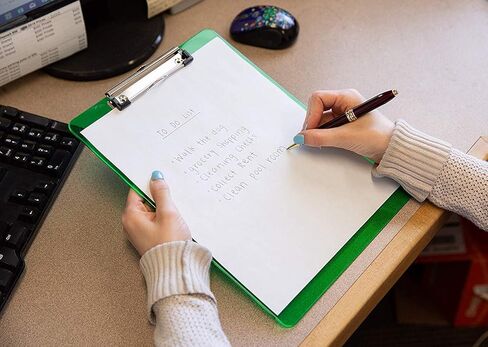 TO DO LIST
· Walk the dog
· grocery shopping
· Cleaning checks
· Collect Rent
· Clean pool room